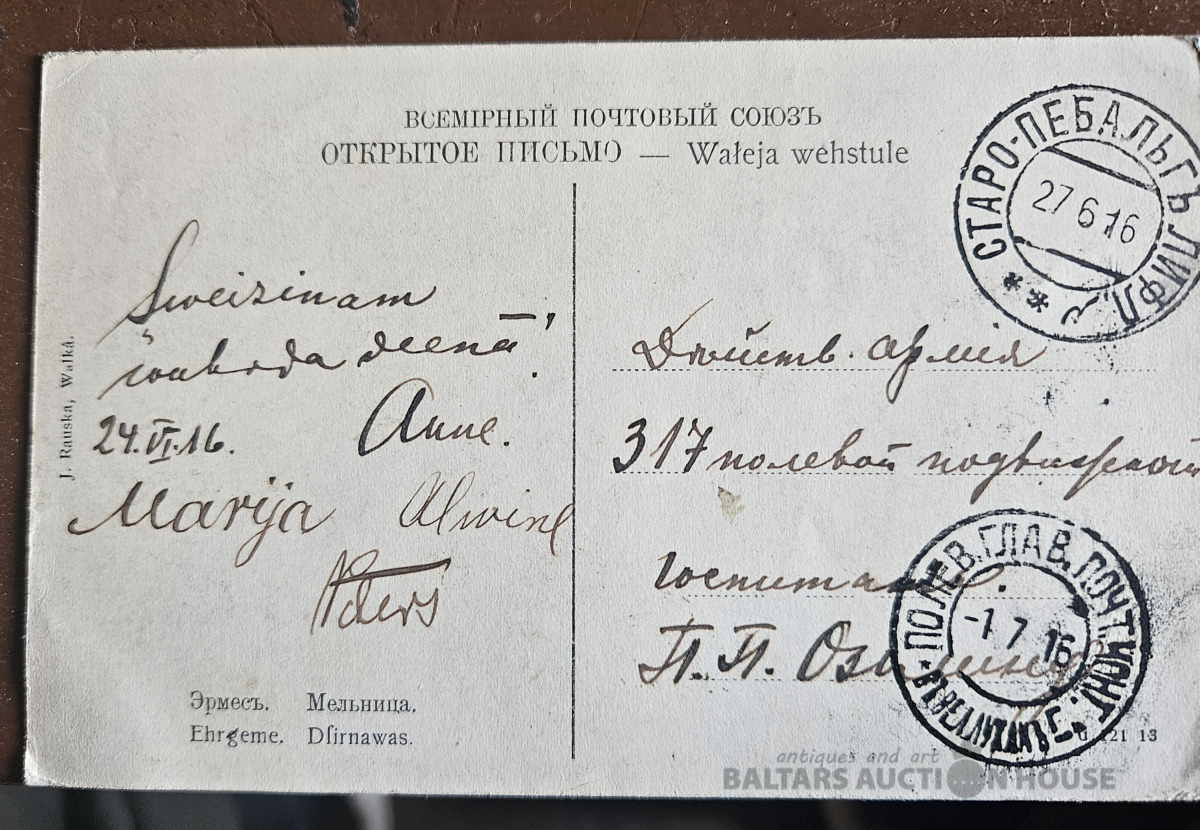 ВСЕМІРНЫЙ ПОЧТОВЫЙ СОЮЗЪ
ОТКРЫТОЕ ПИСЬМО — Wałeja wehstule
СТАРО-ПЕБАЛЬГЪ ЛИФЛ.
27 6 16
Sweizinam
deenā!
24.VI.16. Anne.
Marija Alwine
Peters
J. Rauska, Walkā.
Дѣйств. армія
317 полевой подвижной
госпиталь.
П. П. Озолину
ПОЛЕВ. ГЛАВ. ПОЧТ. КОНТ.
-1 7 16
Эрмесъ. Мельница.
Ehrgeme. Dſirnawas.
21 13
antiques and art
BALTARS AUCTION HOUSE